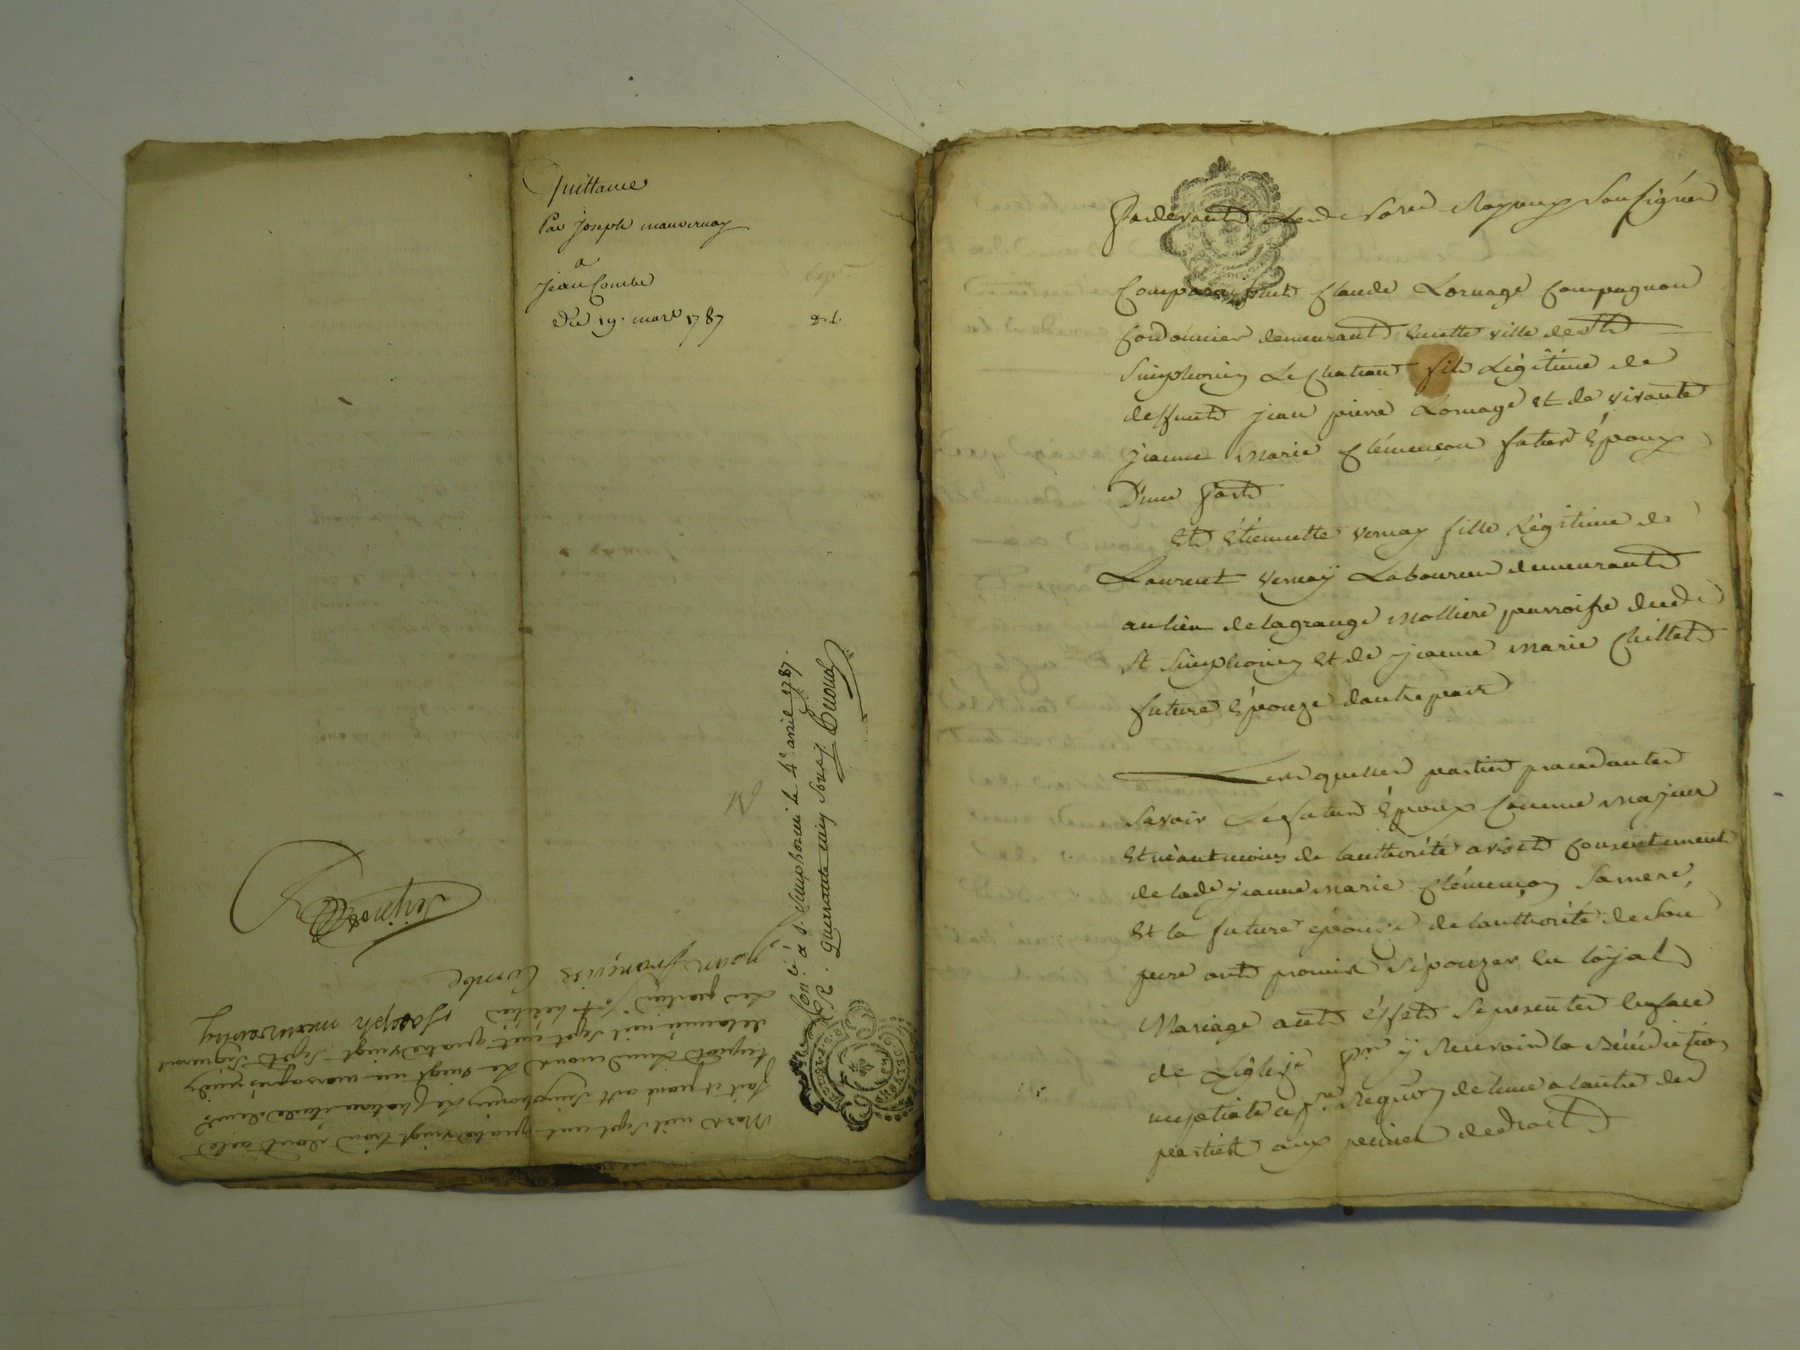 Quittance
Par Joseph mauvernay
a
Jean Combe
Du 19. mars 1787
Con. lé à St. Simphorien le 4e. avril 1787.
R. quarante cinq sous /. Guioud
Mars mil sept cent quatre vingt trois dont acte
fait et passé à St Simphorien
de vingt un
de l'année mil sept cent quatre vingt sept signeront
les parties
Joseph mauvernay
jean françoies Combe
Pardevant les No.res Royaux Soussignés
Comparaissent Claude Lornage Compagnon
Cordonnier demeurant en cette ville de St
Simphorien Le Chateau fils Légitime de
deffunt jean pierre Lornage et de vivante
jeanne Marie Clémencon futur Époux
D'une Part
Et Étiennette Vernay fille Légitime de
Laurent Vernaÿ Laboureur demeurant
au lieu de lagrange Molliere parroisse dud.
St Simphorien et de jeanne Marie Chillet
future Épouze d'autre part
Lesquelles parties procedantes
Savoir Le futur Époux Comme Majeur
Et néantmoins de l'authorité avis et Consentement
de lade. jeanne Marie Clémençon Sa mere,
Et la future épouse de l'authorité de Son
pere ont promis S'épouzer en loÿal
Mariage à cet éffet Se presenter en face
de L'église Pr. ÿ Recevoir la Bénédiction
nuptiale a pre. Requion. de l'une a l'autre des
parties aux peines de droit